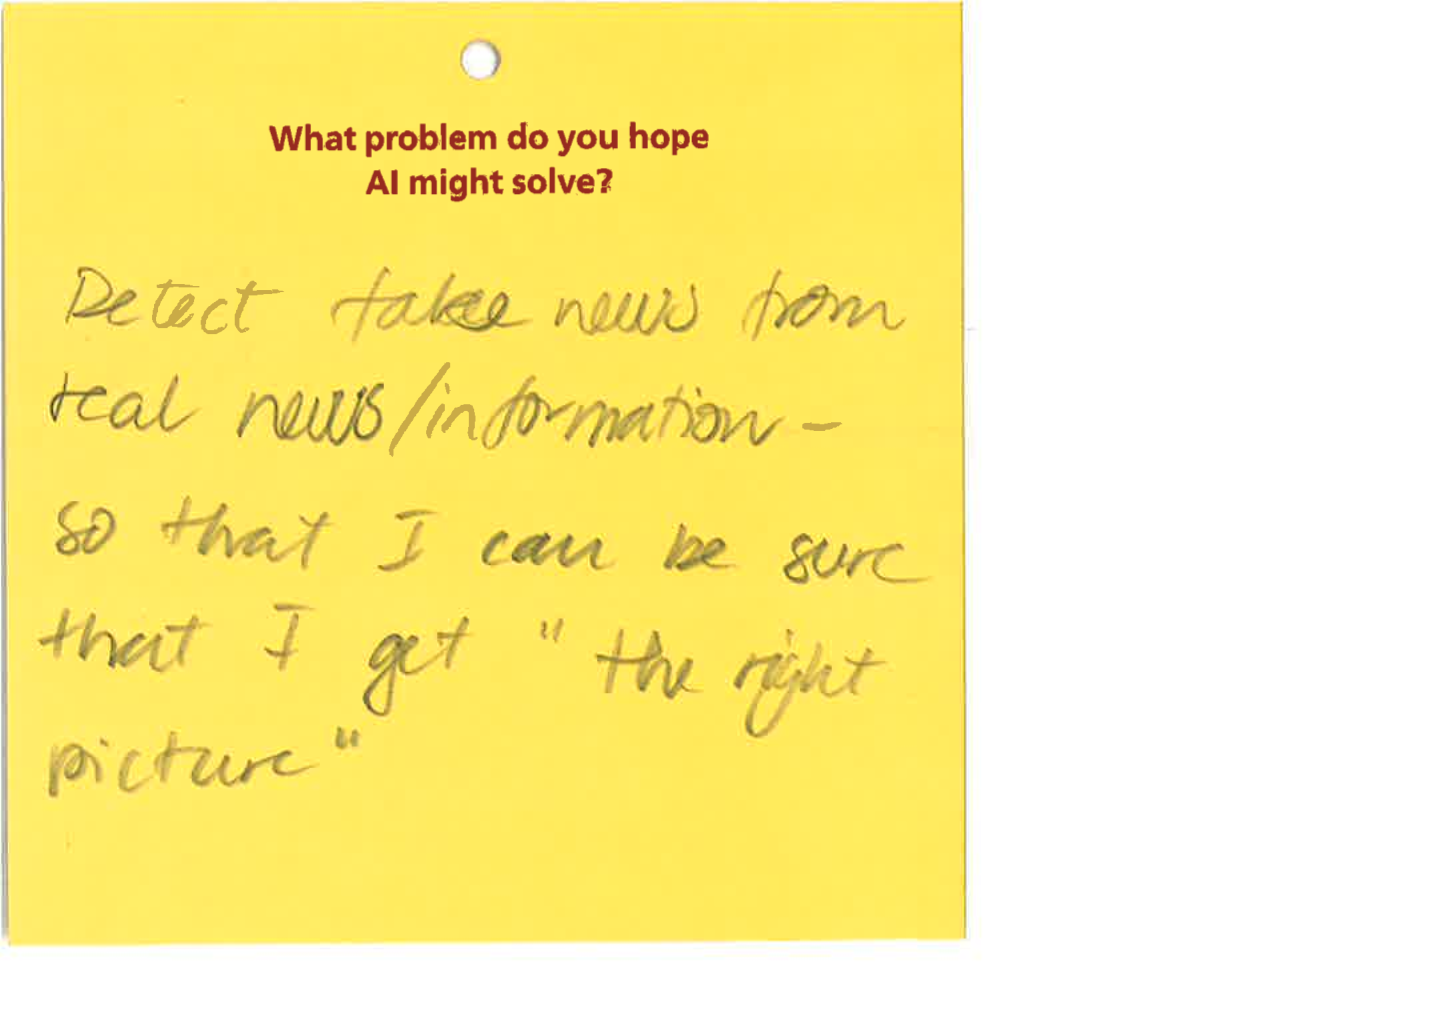 What problem do you hope
AI might solve?
Detect fake news from
real news/information -
so that I can be sure
that I get "the right
picture"